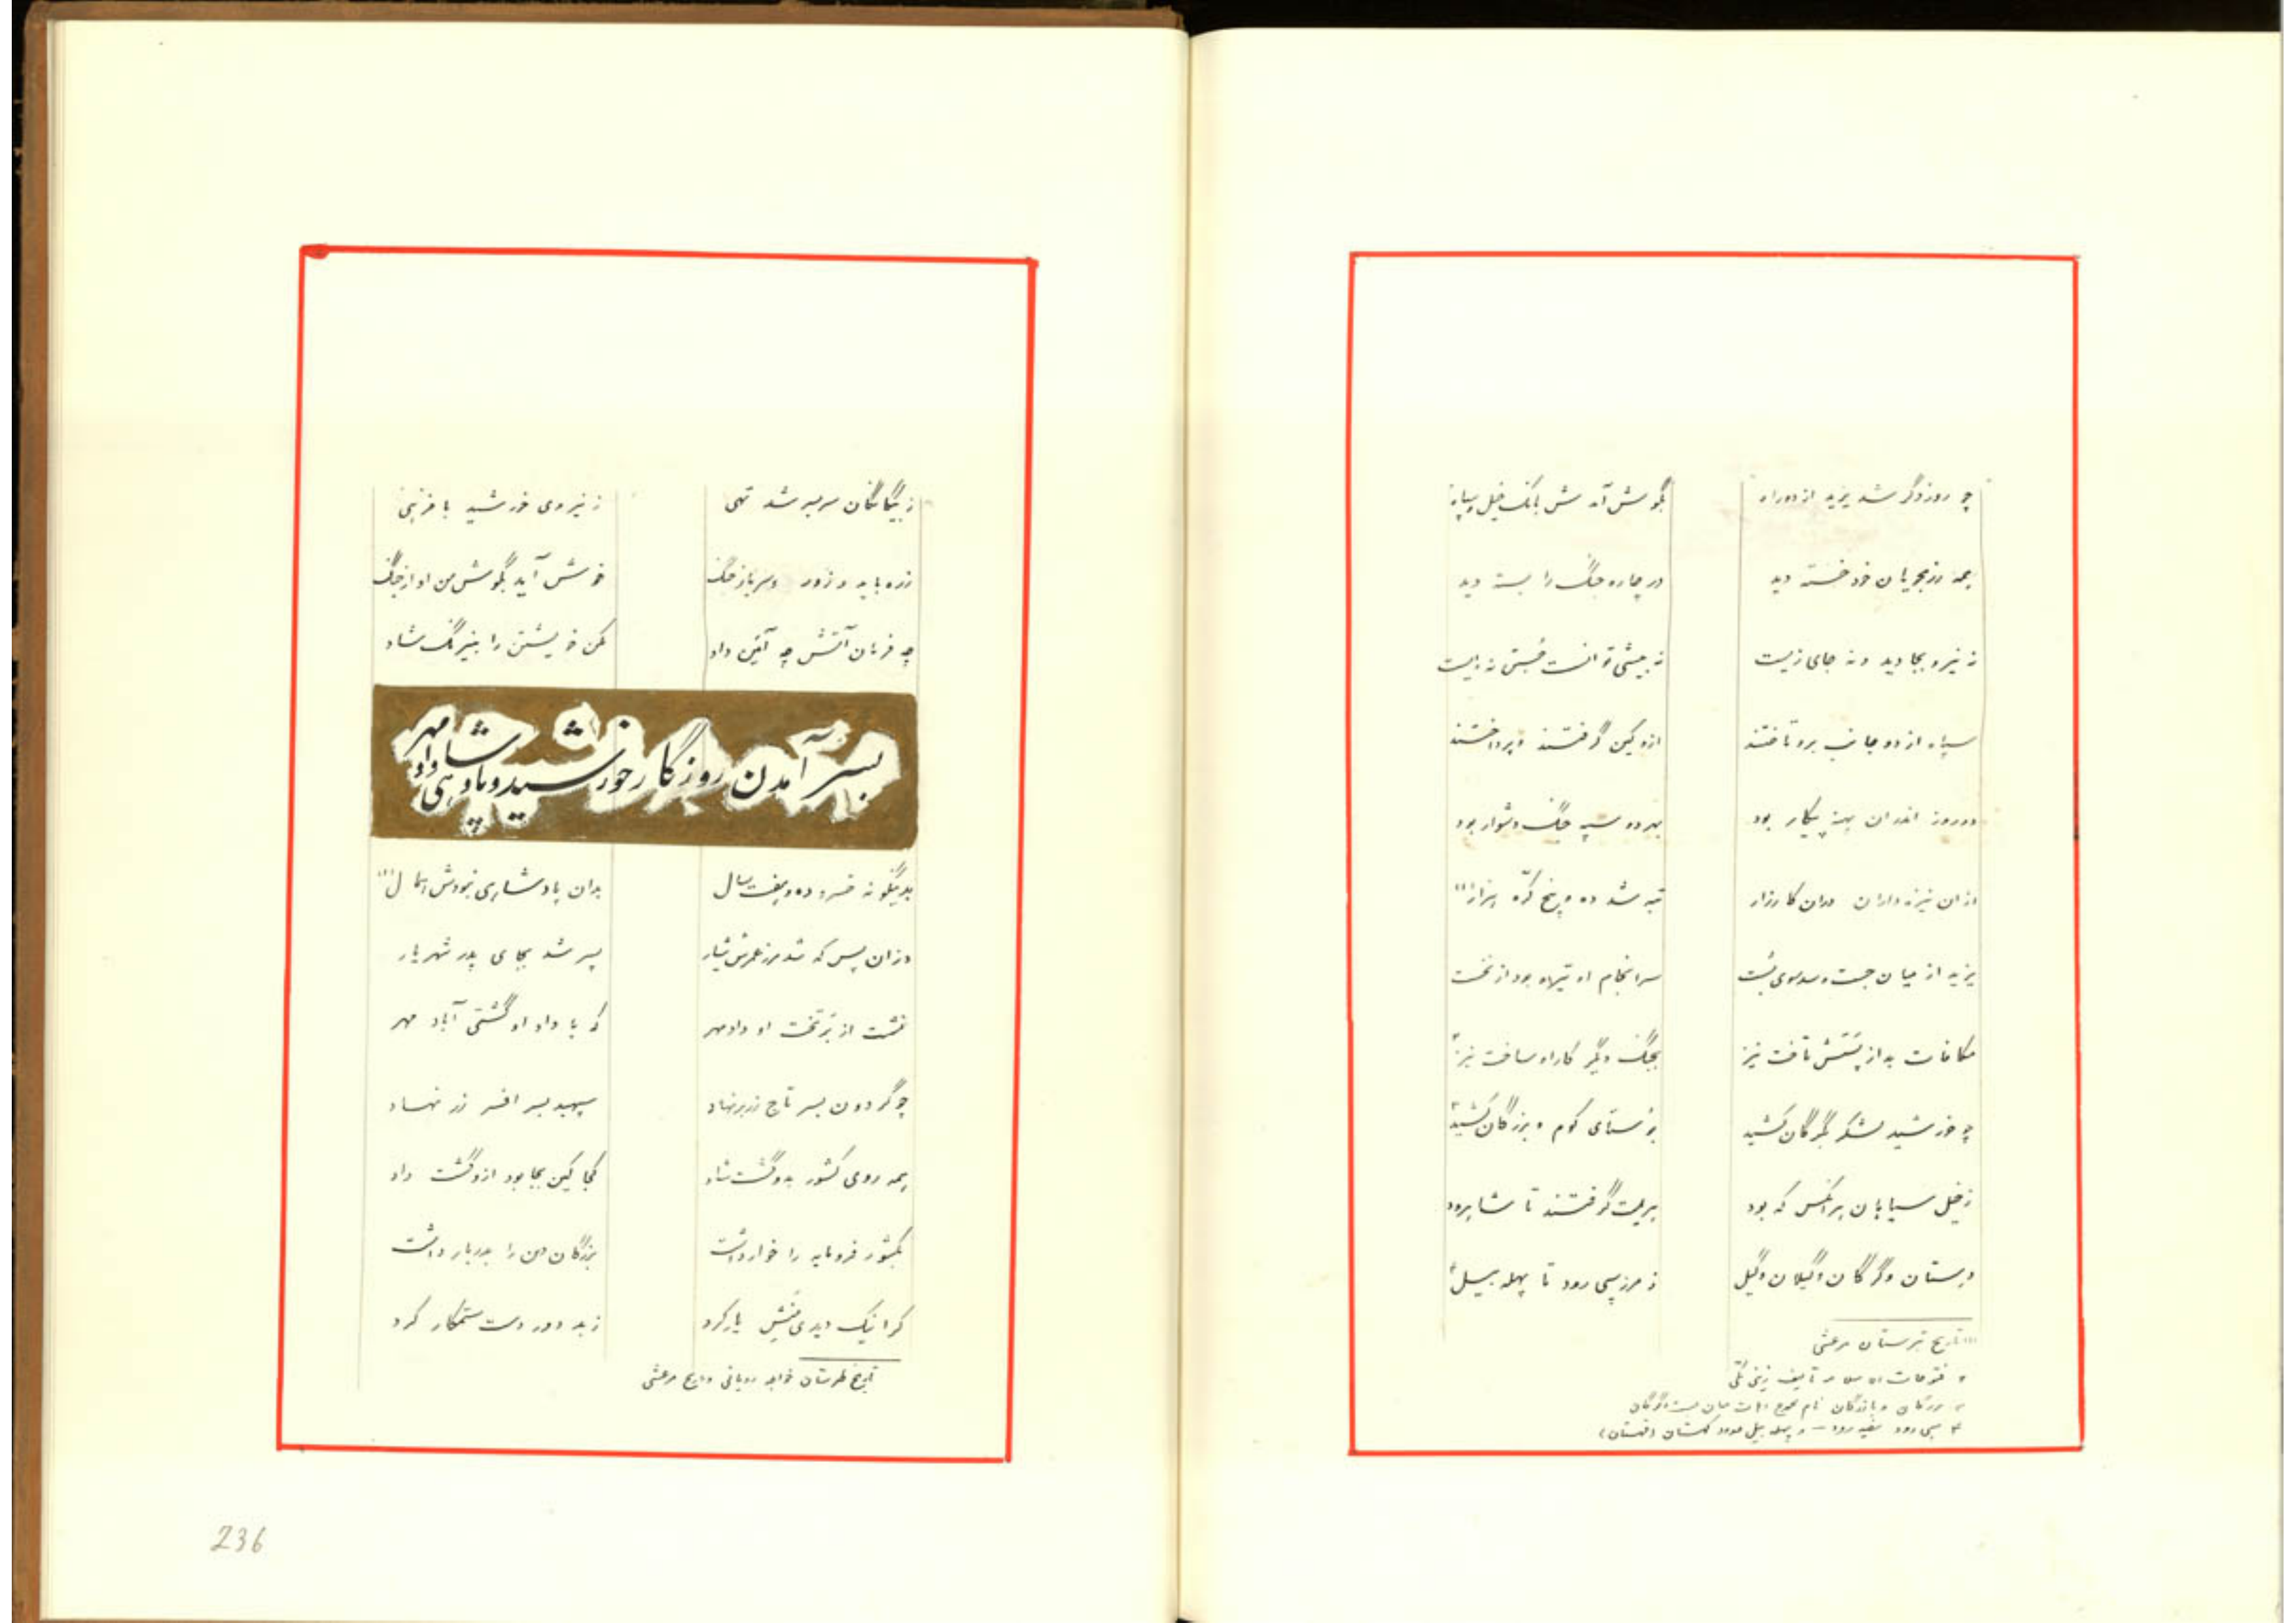 چو روز دگر شد یزید از دو راه بگوش آمدش بانگ خیل و سپاه
همه رزمجویان خود خسته دید در چاره جنگ را بسته دید
نه نیرو بجا دید و نه جای زیست نه بیشی توانست جستن نه ایست
سپاه از دو جانب برو تاختند ازو کین گرفتند و پرداختند
دو روز اندران پهنه پیکار بود بهر دو سپه جنگ دشوار بود
ازان نیزه داران دران کارزار تبه شد ده و پنج کرّه هزار (۱)
یزید از میان جست و سوی بُست سرانجام او تیره بود از نخست
مکافات بد از پسش تافت نیز بجنگ دگر کار او ساخت نیز ۲
چو خورشید لشکر بگرگان کشید بروستای کوم و بزرگان کشید ۳
ز خیل سیاهان هر آنکس که بود بریت گرفتند تا شاهرود
دهستان و گرگان و گیلان و گیل ز مرز سپی رود تا پهله بیل ۴
(۱) تاریخ تبرستان مرعشی
۲ فتوحات تألیف زینی
۳ نام
۴ سپی رود سفید رود - و پهله بیل حدود کهستان (قهستان)
ز بیگانگان سربسر شد تهی ز نیروی خورشید با فرّهی
زره باید و زور و سرباز جنگ خوش آید بگوش من آواز جنگ
چه فرمان آتش چه آئین داد مکن خویشتن را بنیرنگ شاد
بسر آمدن روزگار خورشید و پادشاهی دادمهر
بدینگونه خسرو ده و هفت سال بدان پادشاهی نبودش همال (۱)
وزان پس که شد مرز عمرش شیار پسر شد بجای پدر شهریار
نشست از بر تخت او دادمهر که با داد او گشتی آباد مهر
چو گردون بسر تاج زر برنهاد سپهبد بسر افسر زر نهاد
همه روی کشور بدو گشت شاد کجا کین بجا بود ازو گشت داد
بکشور فرومایه را خوار داشت بزرگان دین را بدربار داشت
کرا نیک دیدی منش یار کرد ز بد دور دست ستمکار کرد
تاریخ طبرستان خواجه رویانی و تاریخ مرعشی
236